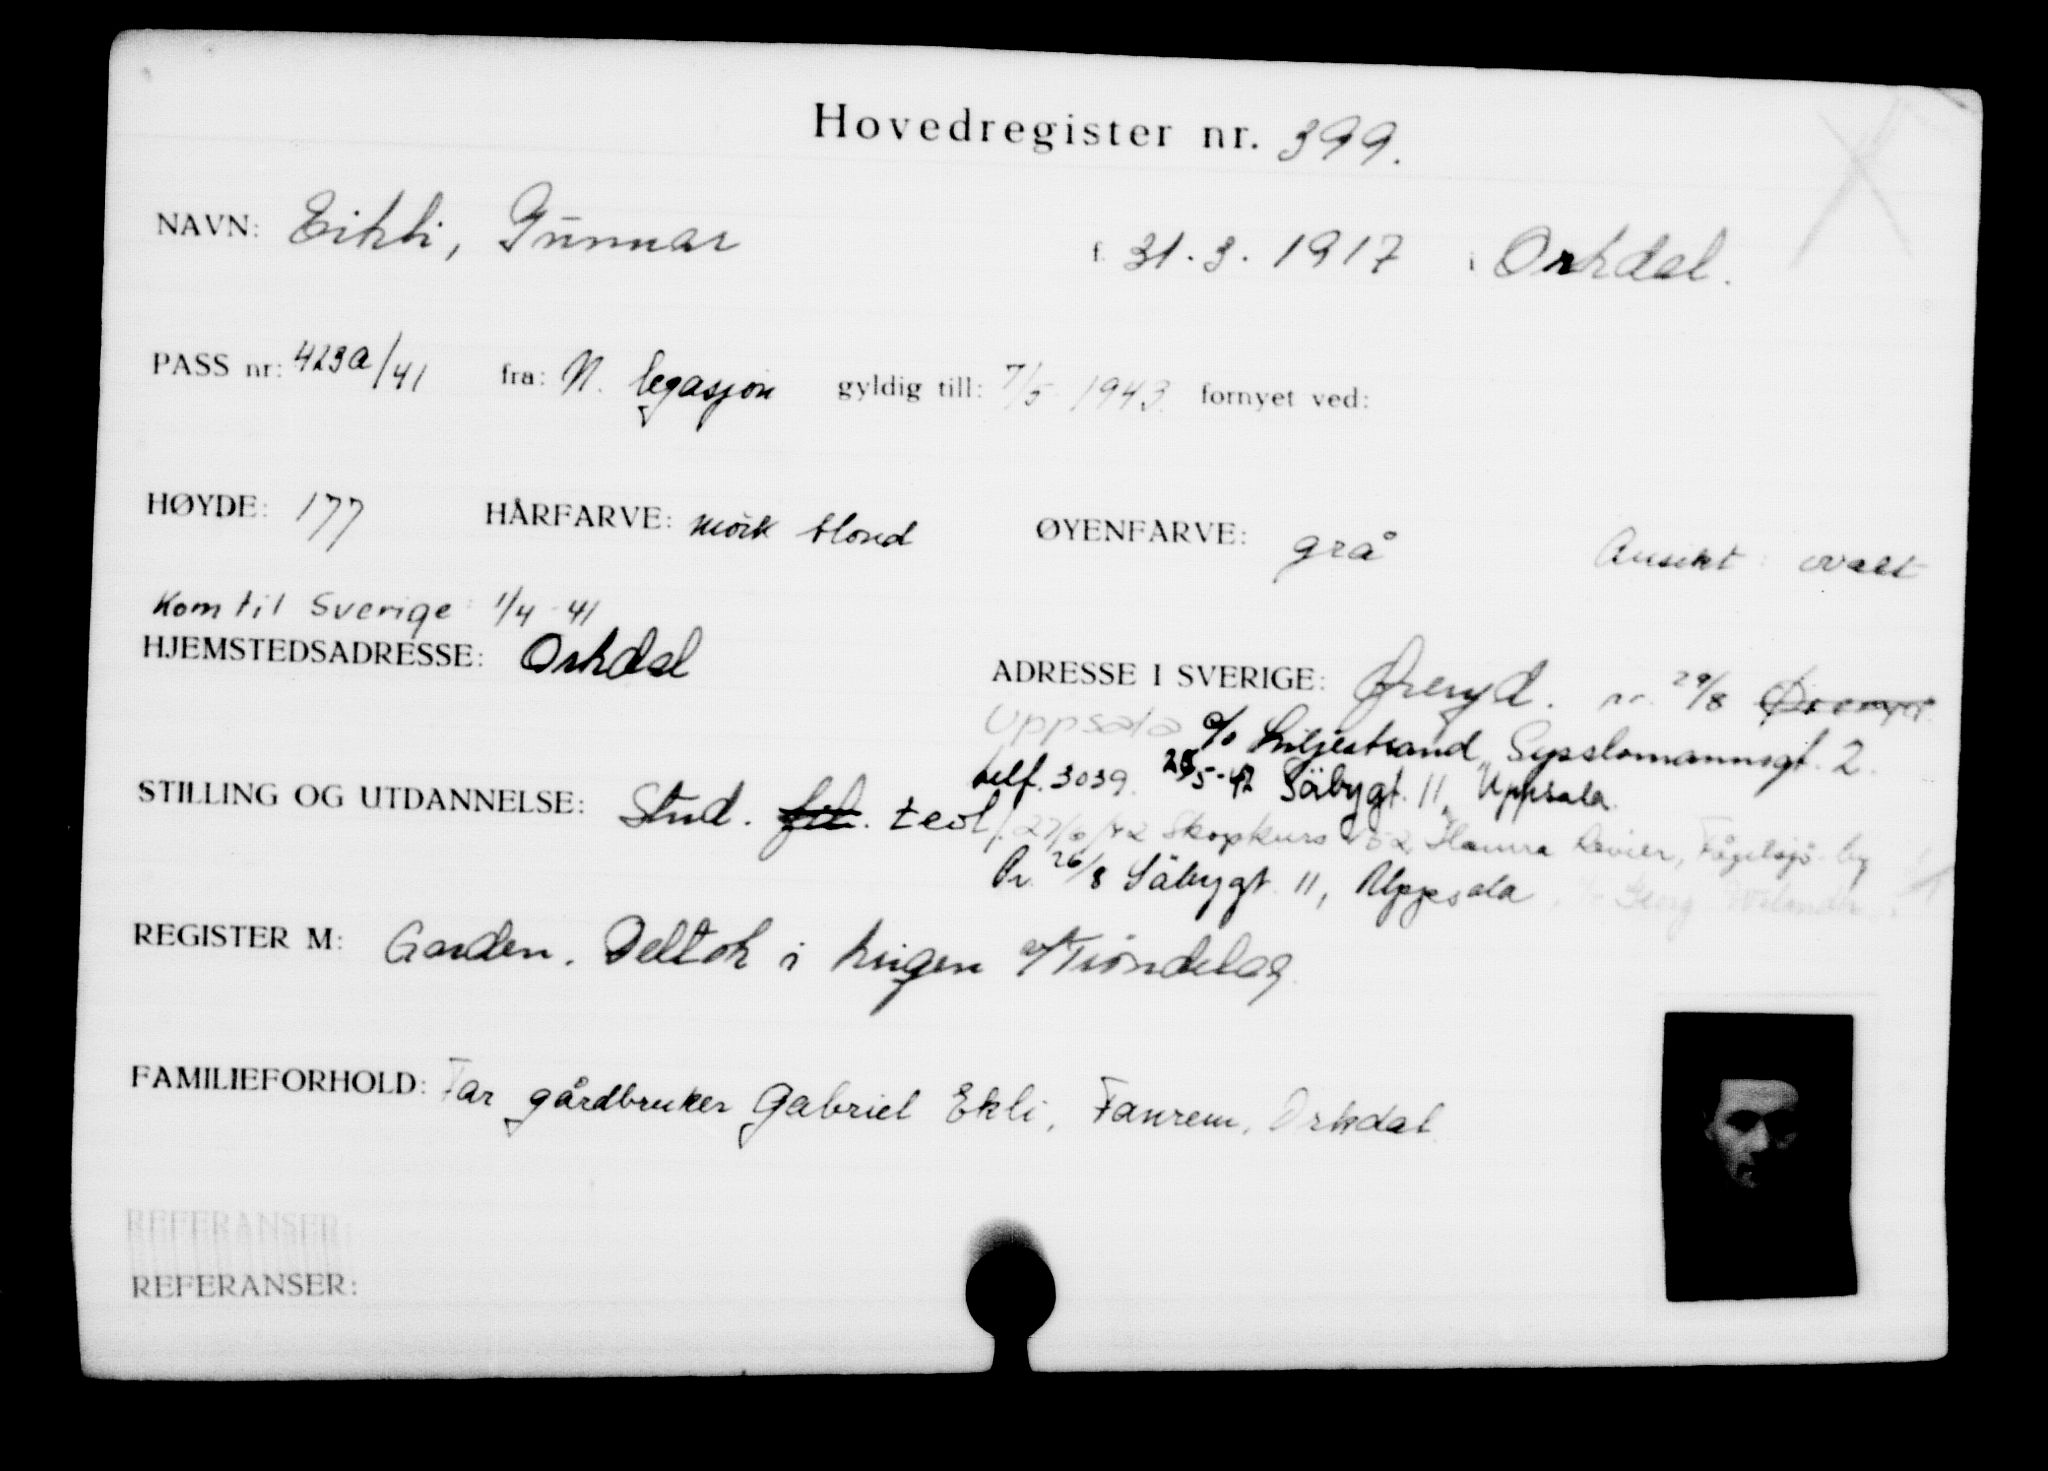 Hovedregister nr. 399.
NAVN: Eikli, Gunnar f. 31.3.1917 i Orkdal.
PASS nr: 423a/41 fra: N. legasjon gyldig till: 7/5 1943. fornyet ved:
HØYDE: 177 HÅRFARVE: mörk blond ØYENFARVE: grå Ansikt: ovalt
Kom til Sverige: 1/4-41
HJEMSTEDSADRESSE: Orkdal ADRESSE I SVERIGE: Öreryd. pr. 29/8 Öreryd.
Uppsala c/o Liljestrand, Sysslomannsgt. 2.
telf. 3039. 25/5-42 Säbygt. 11, Uppsala.
STILLING OG UTDANNELSE: Stud. fil. teol.
f. 27/6/42 Skopkurs 52, Hamra Revier, Fågelsjö by
Pr. 26/8 Säbygt. 11, Uppsala, c/o Georg
REGISTER M: Garden. Deltok i krigen v/Tröndelag.
FAMILIEFORHOLD: Far gårdbruker Gabriel Ekli, Fanrem, Orkdal.
REFERANSER:
REFERANSER: